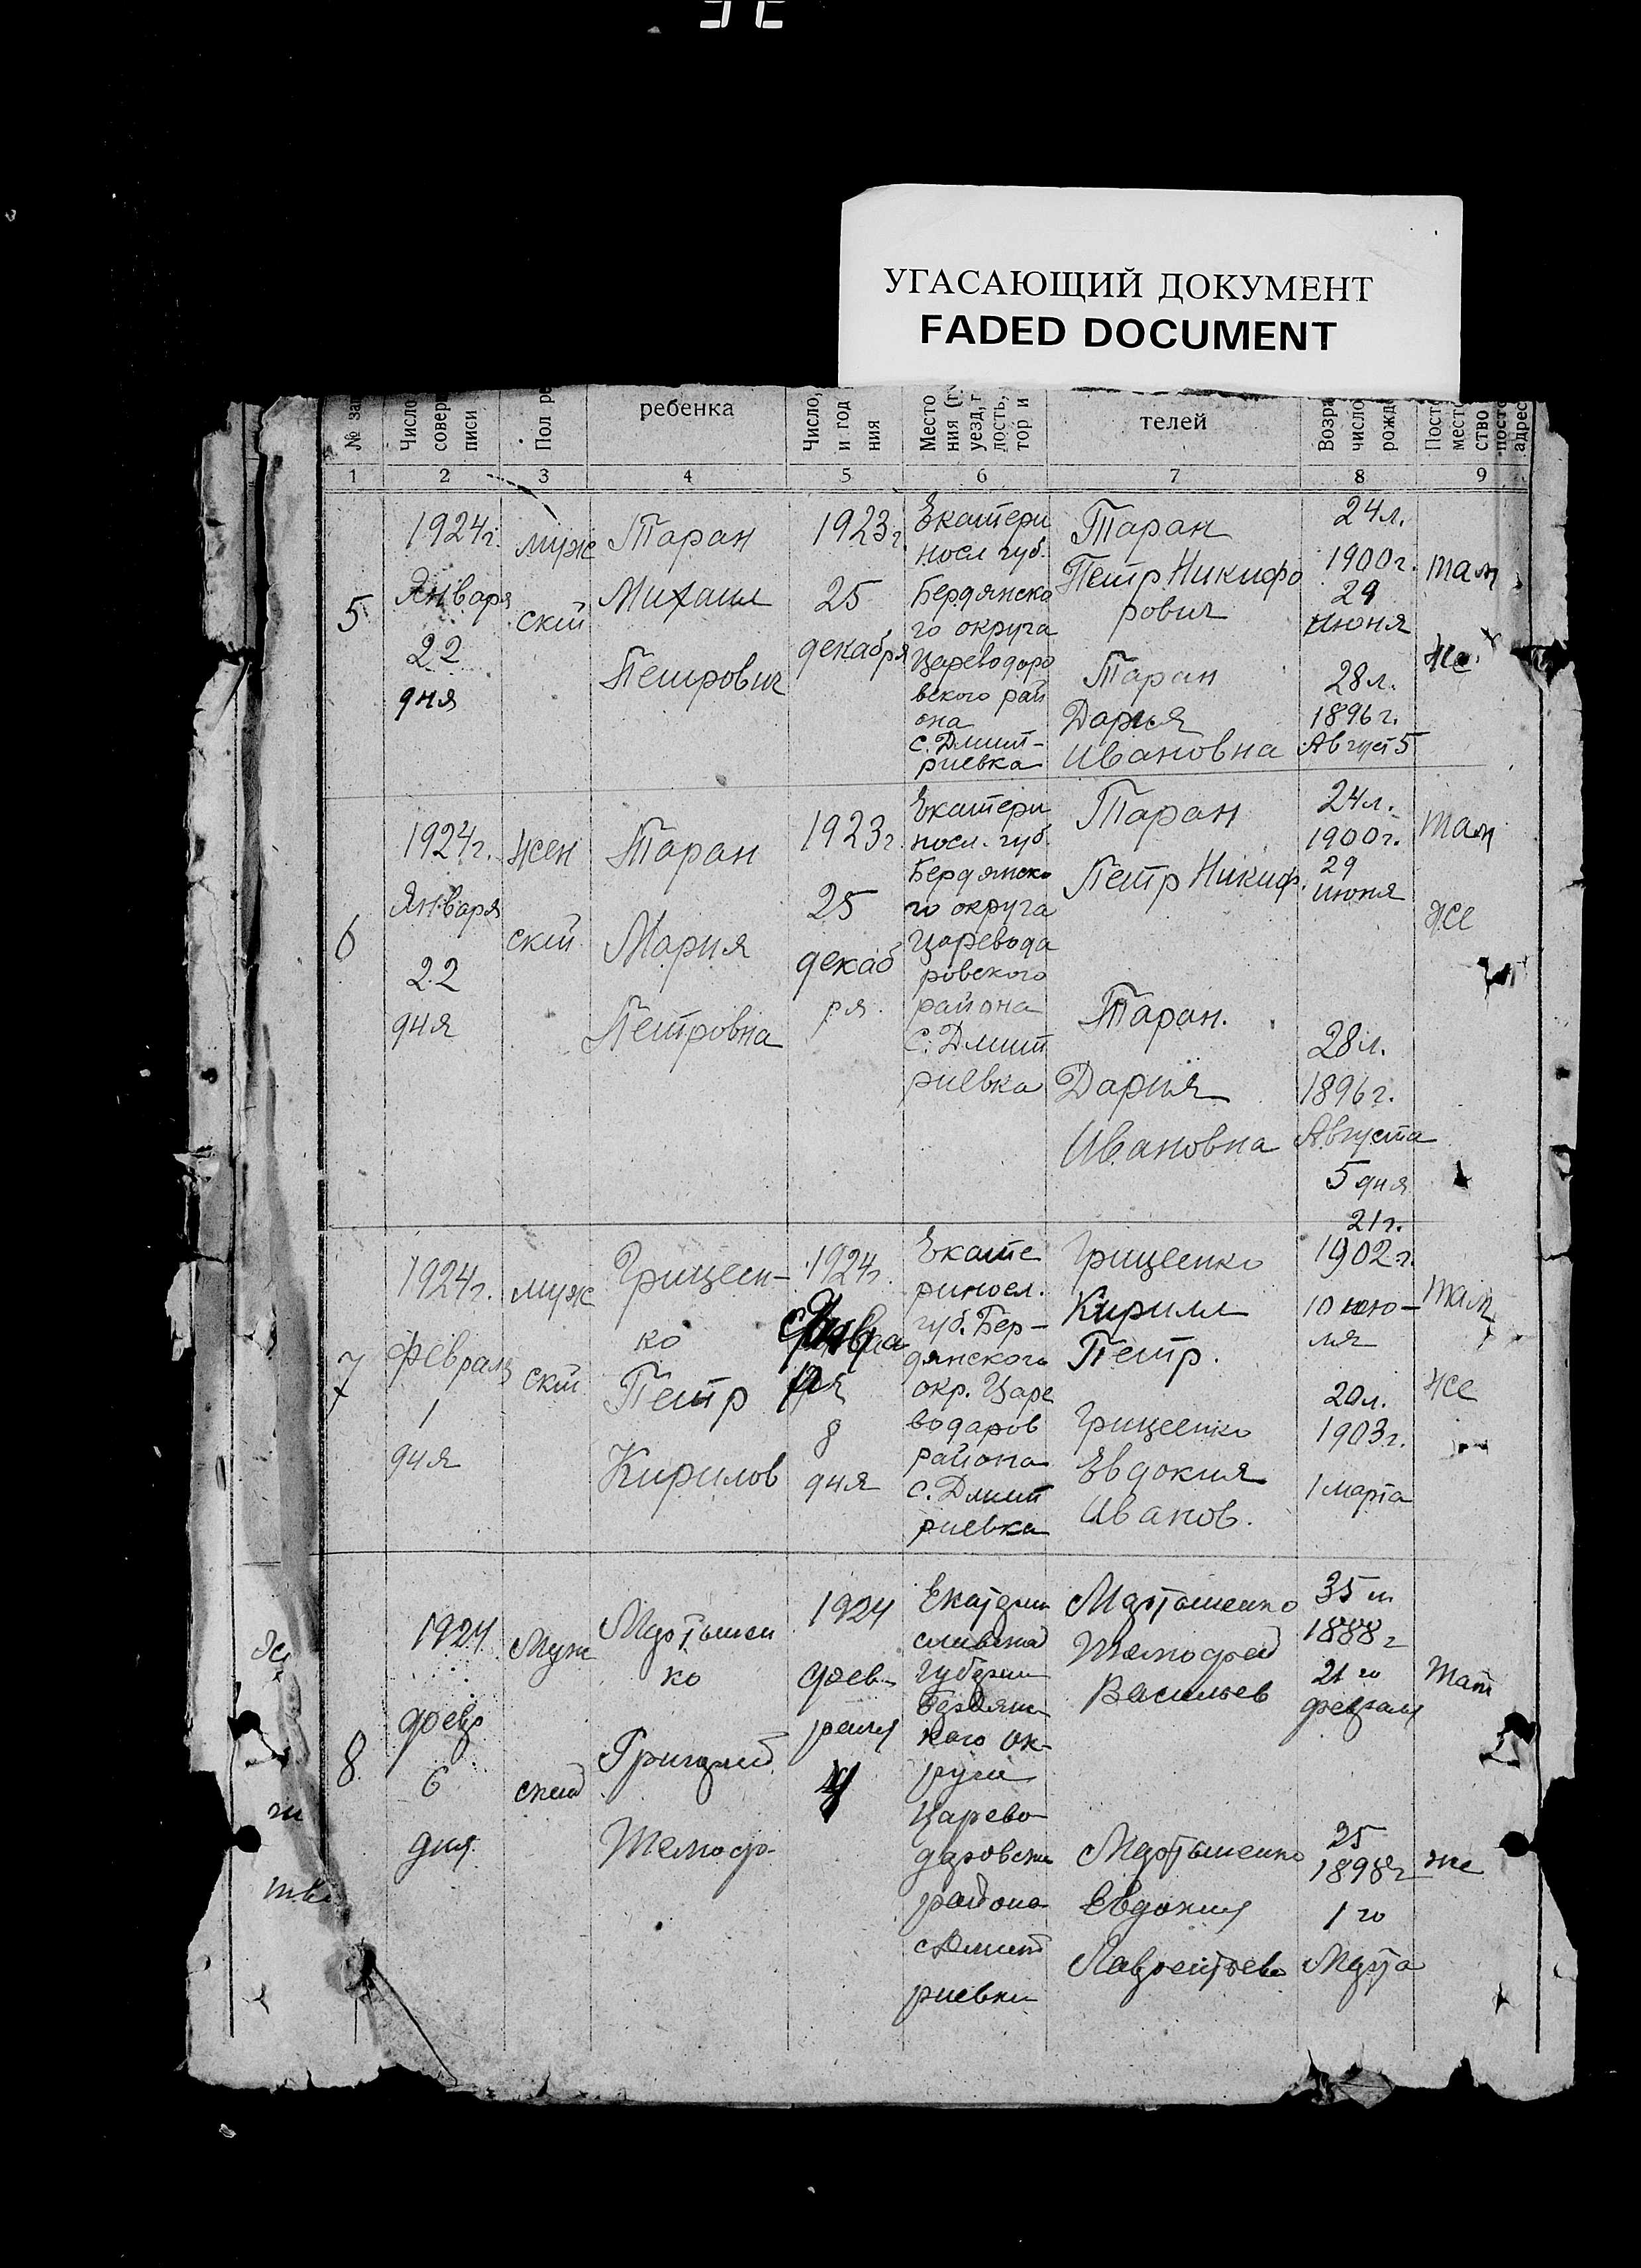 УГАСАЮЩИЙ ДОКУМЕНТ
FADED DOCUMENT
№ за
Число
совер
писи
Пол ре
ребенка
Число,
и год
ния
Место
ния (г.
уезд, г
лость,
тор и
телей
Возра
число
рожд
Посто
место
ство
посто
адрес
1 2 3 4 5 6 7 8 9
5
1924г.
Января
22
дня
муж
ский
Таран
Михаил
Петрович
1923г.
25
декабря
Екатери
носл губ.
Бердянско
го округа
Цареводаро
вского рай
она
с. Дмит-
риевка
Таран
Петр Никифо
рович
Таран
Дария
Ивановна
24л.
1900г.
29
июня
28л.
1896г.
Август 5
там
же
6
1924г.
Января
22
дня
жен
ский
Таран
Мария
Петровна
1923г.
25
декаб
ря
Екатери
носл. губ.
Бердянско
го округа
Царевода
ровского
района
с. Дмит
риевка
Таран
Петр Никиф.
Таран.
Дария
Ивановна
24л.
1900г.
29
июня
28л.
1896г.
Августа
5 дня
там
же
7
1924г.
февраля
1
дня
муж
ский
Грицен-
ко
Петр
Кирилов
1924г.
8
дня
Екате
риносл.
губ. Бер-
дянского
окр. Царе
водаров
района
с. Дмит
риевка
Гриценко
Кирилл
Петр.
Гриценко
Евдокия
Иванов.
21г.
1902г.
10 июю-
ля
20л.
1903г.
1 марта
там
же
8
1924
февр
6
дня
Муж
ский
Мартышен
ко
Григорий
Тимоф-
1924
фев-
раля
4
Екатерин
славская
Губерни
Бердянс
кого ок-
руга
Царево
даровски
района
с Дмит
риевки
Мартышенко
Тимофей
Васильев
Мартышенко
Евдокия
Лаврентьева
35 л
1888г
21 го
февраля
25
1898г
1 го
Марта
там
же